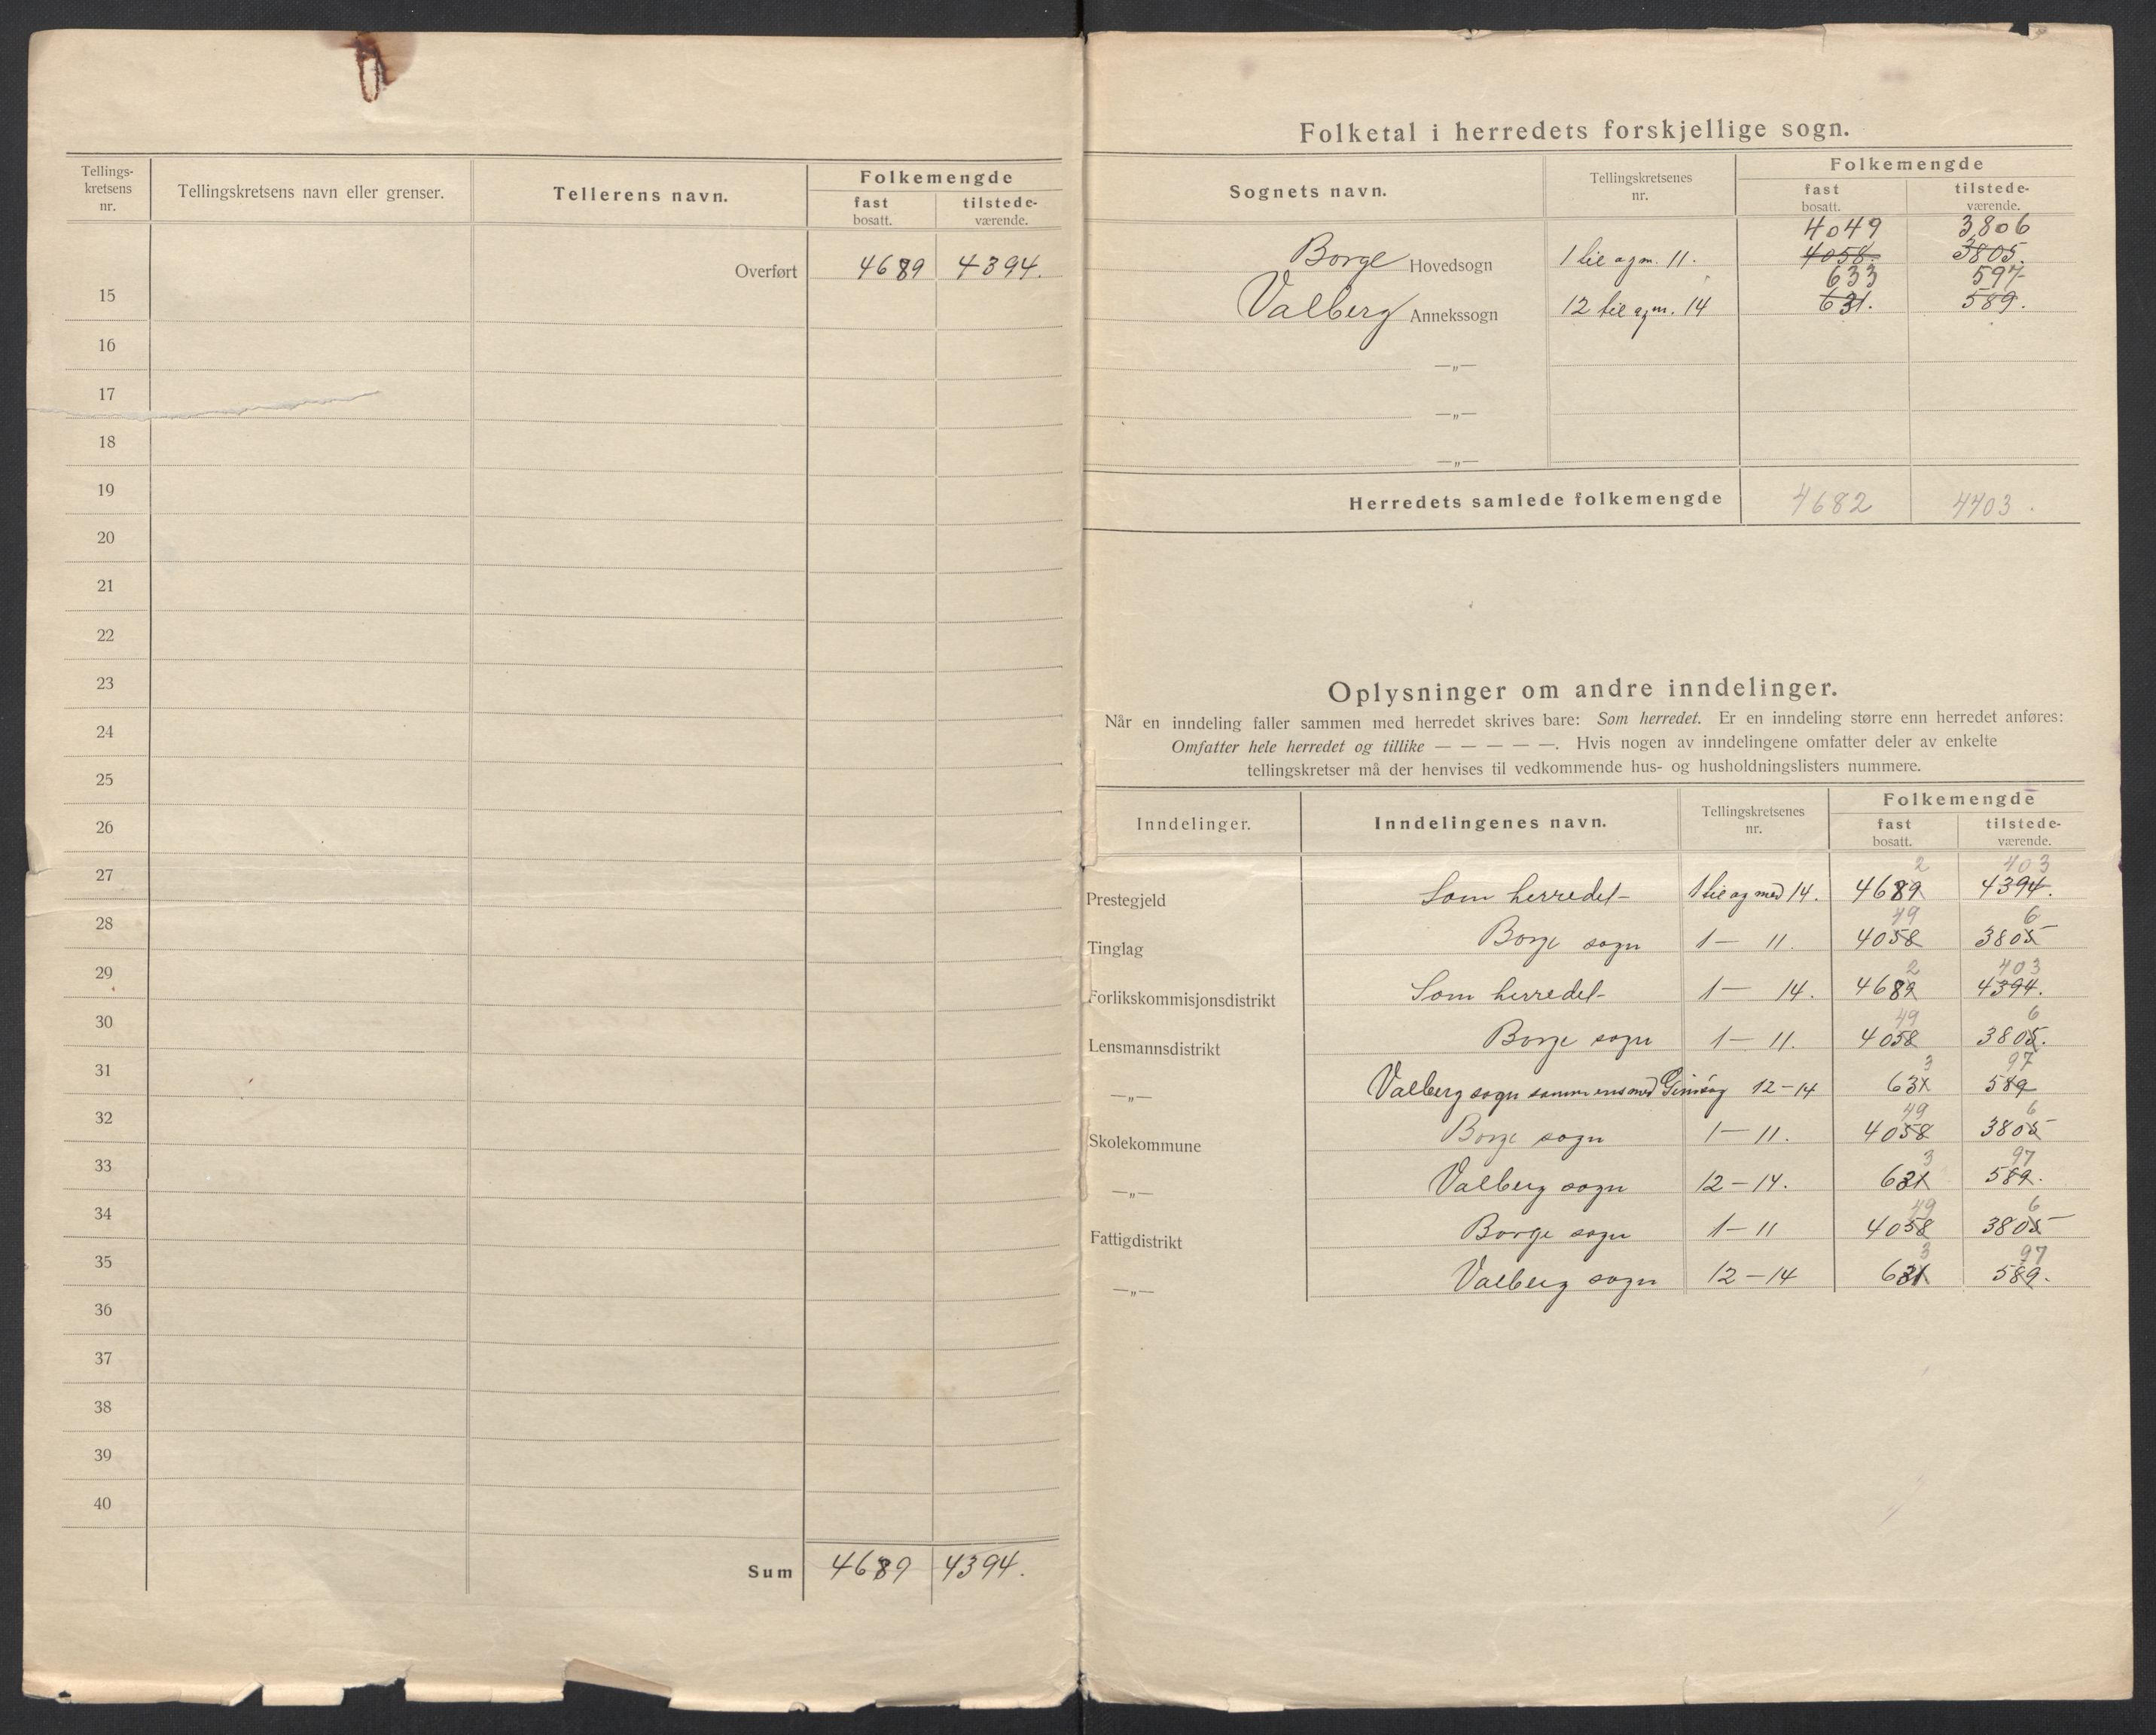 Tellings-
kretsens
nr.
Tellingskretsens navn eller grenser.
Tellerens navn.
Folkemengde
fast
bosatt.
tilstede-
værende.
Overført 4689 4394.
15
16
17
18
19
20
21
22
23
24
25
26
27
28
29
30
31
32
33
34
35
36
37
38
39
40
Sum 4689 4394.
Folketal i herredets forskjellige sogn.
Sognets navn.
Tellingskretsenes
nr.
Folkemengde
fast
bosatt.
tilstede-
værende.
4049 3806
Borge Hovedsogn 1 til og m. 11. 4058. 3805.
633 597
Valberg Annekssogn 12 til og m. 14 631. 589.
—„—
—„—
—„—
Herredets samlede folkemengde 4682 4403.
Oplysninger om andre inndelinger.
Når en inndeling faller sammen med herredet skrives bare: Som herredet. Er en inndeling større enn herredet anføres:
Omfatter hele herredet og tillike — — — — —. Hvis nogen av inndelingene omfatter deler av enkelte
tellingskretser må der henvises til vedkommende hus- og husholdningslisters nummere.
Inndelinger.
Inndelingenes navn.
Tellingskretsenes
nr.
Folkemengde
fast
bosatt.
tilstede-
værende.
2 403
Prestegjeld Som herredet 1 til og med 14. 4689 4394.
49 6
Tinglag Borge sogn 1 — 11. 4058 3805
2 403
Forlikskommisjonsdistrikt Som herredet 1 — 14. 4689 4394.
49 6
Lensmannsdistrikt Borge sogn 1 — 11. 4058 3805.
3 97
—„— Valberg sogn sammens med Gimsøy 12 – 14 631 589
49 6
Skolekommune Borge sogn 1 — 11. 4058 3805
3 97
—„— Valberg sogn 12 – 14. 631 589.
49 6
Fattigdistrikt Borge sogn 1 – 11 4058 3805
3 97
—„— Valberg sogn 12 – 14 631 589.